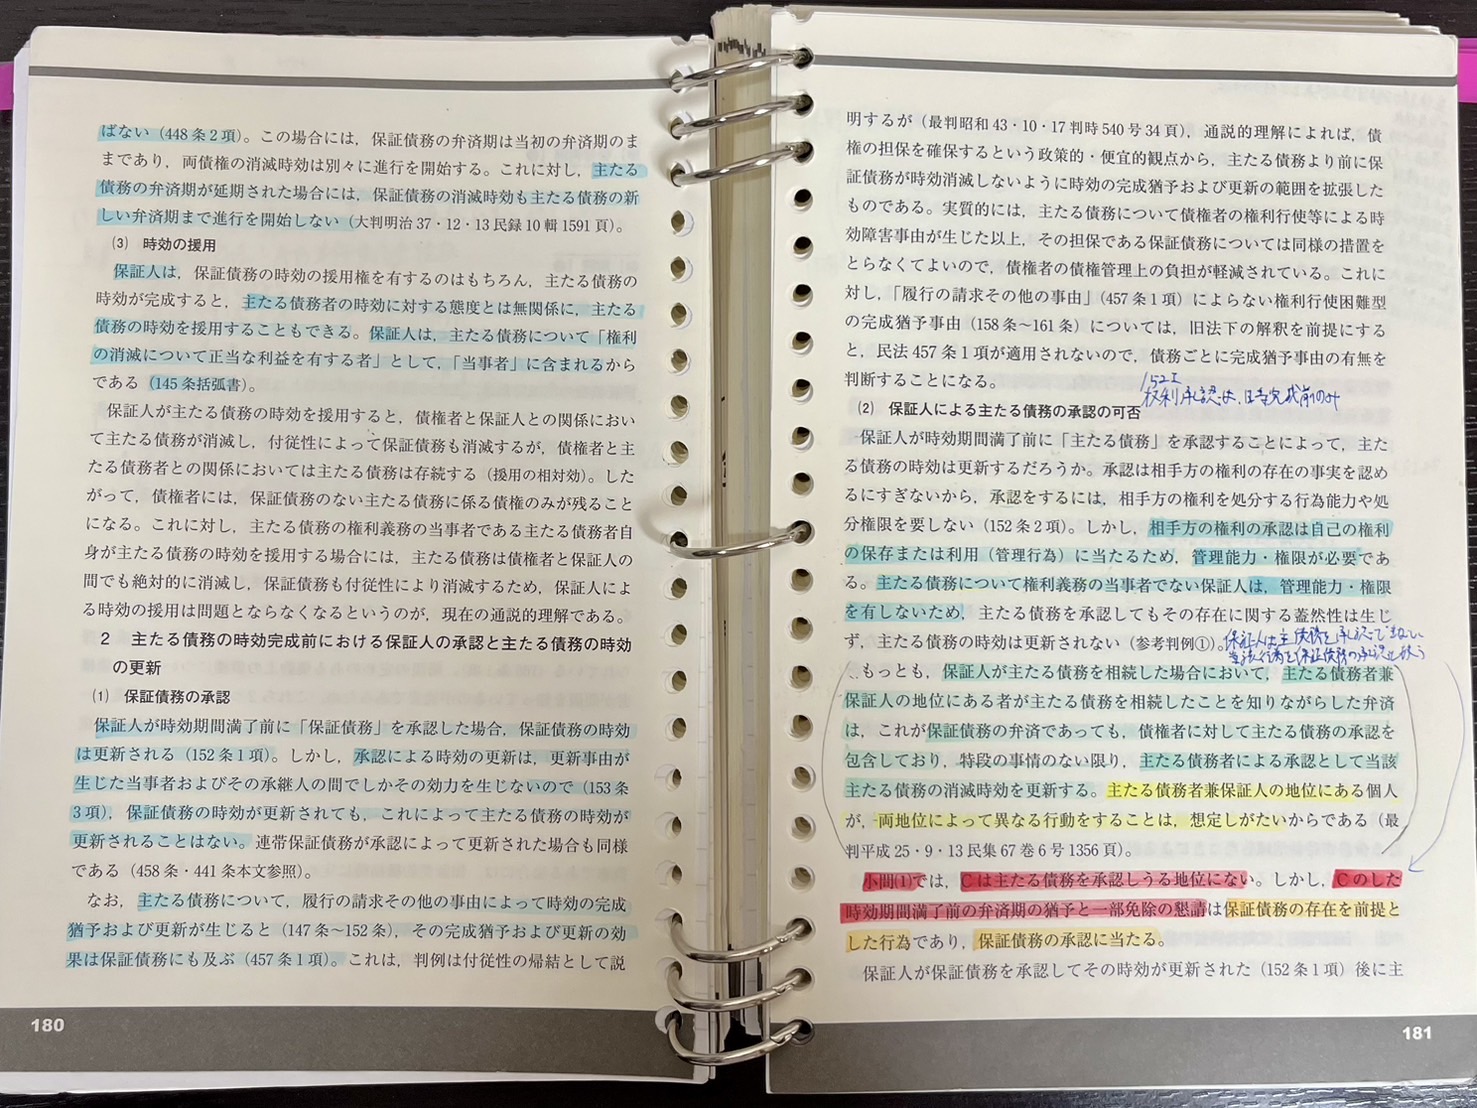 ばない（448条2項）。この場合には，保証債務の弁済期は当初の弁済期のま
まであり，両債権の消滅時効は別々に進行を開始する。これに対し，主たる
債務の弁済期が延期された場合には，保証債務の消滅時効も主たる債務の新
しい弁済期まで進行を開始しない（大判明治37・12・13民録10輯1591頁）。
⑶ 時効の援用
保証人は，保証債務の時効の援用権を有するのはもちろん，主たる債務の
時効が完成すると，主たる債務者の時効に対する態度とは無関係に，主たる
債務の時効を援用することもできる。保証人は，主たる債務について「権利
の消滅について正当な利益を有する者」として，「当事者」に含まれるから
である（145条括弧書）。
保証人が主たる債務の時効を援用すると，債権者と保証人との関係におい
て主たる債務が消滅し，付従性によって保証債務も消滅するが，債権者と主
たる債務者との関係においては主たる債務は存続する（援用の相対効）。した
がって，債権者には，保証債務のない主たる債務に係る債権のみが残ること
になる。これに対し，主たる債務の権利義務の当事者である主たる債務者自
身が主たる債務の時効を援用する場合には，主たる債務は債権者と保証人の
間でも絶対的に消滅し，保証債務も付従性により消滅するため，保証人によ
る時効の援用は問題とならなくなるというのが，現在の通説的理解である。
2 主たる債務の時効完成前における保証人の承認と主たる債務の時効
の更新
⑴ 保証債務の承認
保証人が時効期間満了前に「保証債務」を承認した場合，保証債務の時効
は更新される（152条1項）。しかし，承認による時効の更新は，更新事由が
生じた当事者およびその承継人の間でしかその効力を生じないので（153条
3項），保証債務の時効が更新されても，これによって主たる債務の時効が
更新されることはない。連帯保証債務が承認によって更新された場合も同様
である（458条・441条本文参照）。
なお，主たる債務について，履行の請求その他の事由によって時効の完成
猶予および更新が生じると（147条〜152条），その完成猶予および更新の効
果は保証債務にも及ぶ（457条1項）。これは，判例は付従性の帰結として説
180
明するが（最判昭和43・10・17判時540号34頁），通説的理解によれば，債
権の担保を確保するという政策的・便宜的観点から，主たる債務より前に保
証債務が時効消滅しないように時効の完成猶予および更新の範囲を拡張した
ものである。実質的には，主たる債務について債権者の権利行使等による時
効障害事由が生じた以上，その担保である保証債務については同様の措置を
とらなくてよいので，債権者の債権管理上の負担が軽減されている。これに
対し，「履行の請求その他の事由」（457条1項）によらない権利行使困難型
の完成猶予事由（158条〜161条）については，旧法下の解釈を前提にする
と，民法457条1項が適用されないので，債務ごとに完成猶予事由の有無を
判断することになる。
152Ⅰ
権利承認は，時効完成前のみ
⑵ 保証人による主たる債務の承認の可否
保証人が時効期間満了前に「主たる債務」を承認することによって，主た
る債務の時効は更新するだろうか。承認は相手方の権利の存在の事実を認め
るにすぎないから，承認をするには，相手方の権利を処分する行為能力や処
分権限を要しない（152条2項）。しかし，相手方の権利の承認は自己の権利
の保存または利用（管理行為）に当たるため，管理能力・権限が必要であ
る。主たる債務について権利義務の当事者でない保証人は，管理能力・権限
を有しないため，主たる債務を承認してもその存在に関する蓋然性は生じ
ず，主たる債務の時効は更新されない（参考判例①）。
保証人は主債務を承認できない
当該行為を保証債務の承認と扱う
もっとも，保証人が主たる債務を相続した場合において，主たる債務者兼
保証人の地位にある者が主たる債務を相続したことを知りながらした弁済
は，これが保証債務の弁済であっても，債権者に対して主たる債務の承認を
包含しており，特段の事情のない限り，主たる債務者による承認として当該
主たる債務の消滅時効を更新する。主たる債務者兼保証人の地位にある個人
が，両地位によって異なる行動をすることは，想定しがたいからである（最
判平成25・9・13民集67巻6号1356頁）。
小問⑴では，Cは主たる債務を承認しうる地位にない。しかし，Cのした
時効期間満了前の弁済期の猶予と一部免除の懇請は保証債務の存在を前提と
した行為であり，保証債務の承認に当たる。
保証人が保証債務を承認してその時効が更新された（152条1項）後に主
181